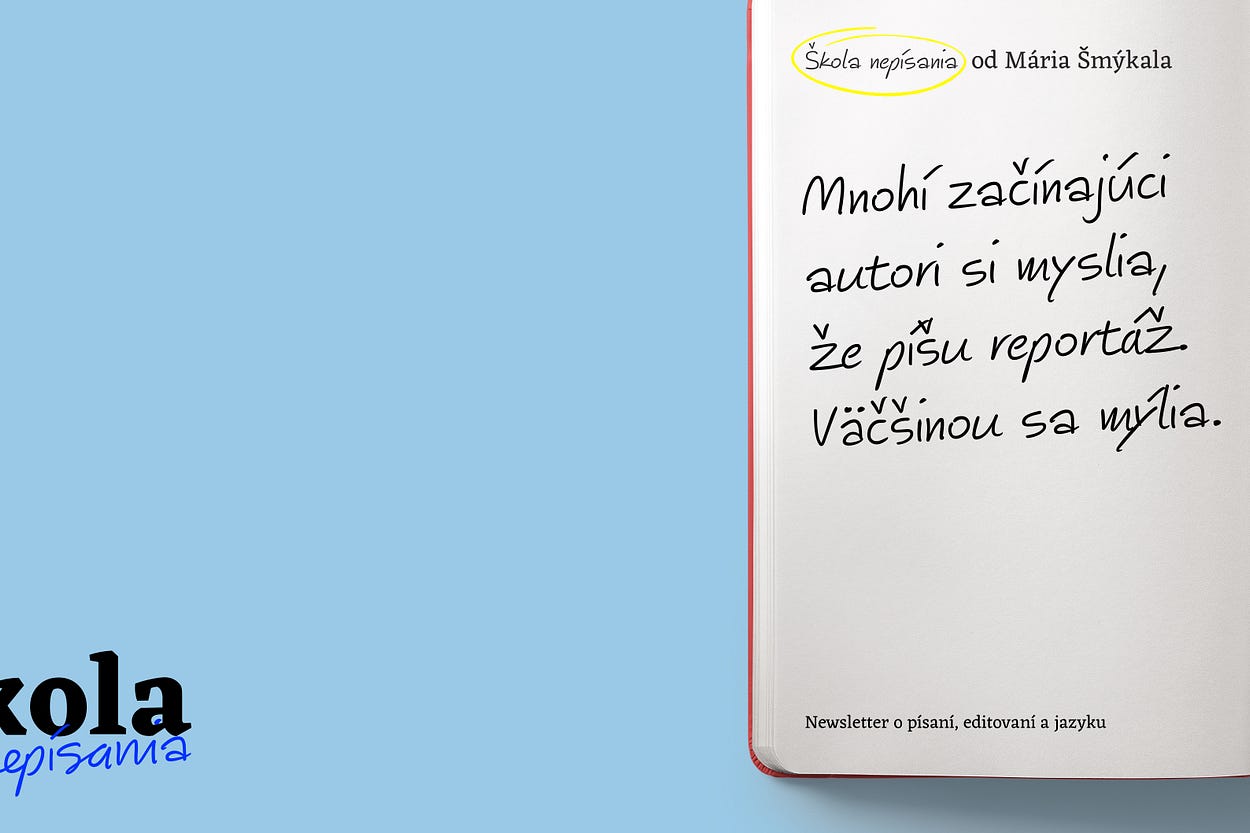 Škola nepísania od Mária Šmýkala
Mnohí začínajúci
autori si myslia,
že píšu reportáž.
Väčšinou sa mýlia.
Newsletter o písaní, editovaní a jazyku
kola
nepísania